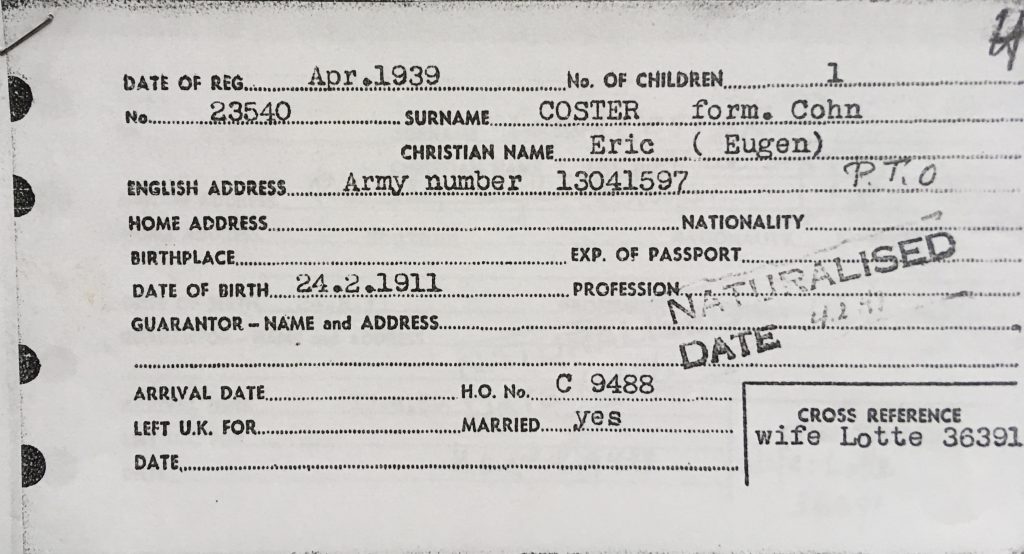 DATE OF REG. Apr.1939 No. OF CHILDREN 1
No. 23540 SURNAME COSTER form. Cohn
CHRISTIAN NAME Eric ( Eugen)
ENGLISH ADDRESS Army number 13041597 P.T.O
HOME ADDRESS NATIONALITY
BIRTHPLACE EXP. OF PASSPORT
DATE OF BIRTH 24.2.1911 PROFESSION
NATURALISED
GUARANTOR – NAME and ADDRESS
DATE
ARRIVAL DATE H.O. No. C 9488
LEFT U.K. FOR MARRIED yes
DATE
CROSS REFERENCE
wife Lotte 36391